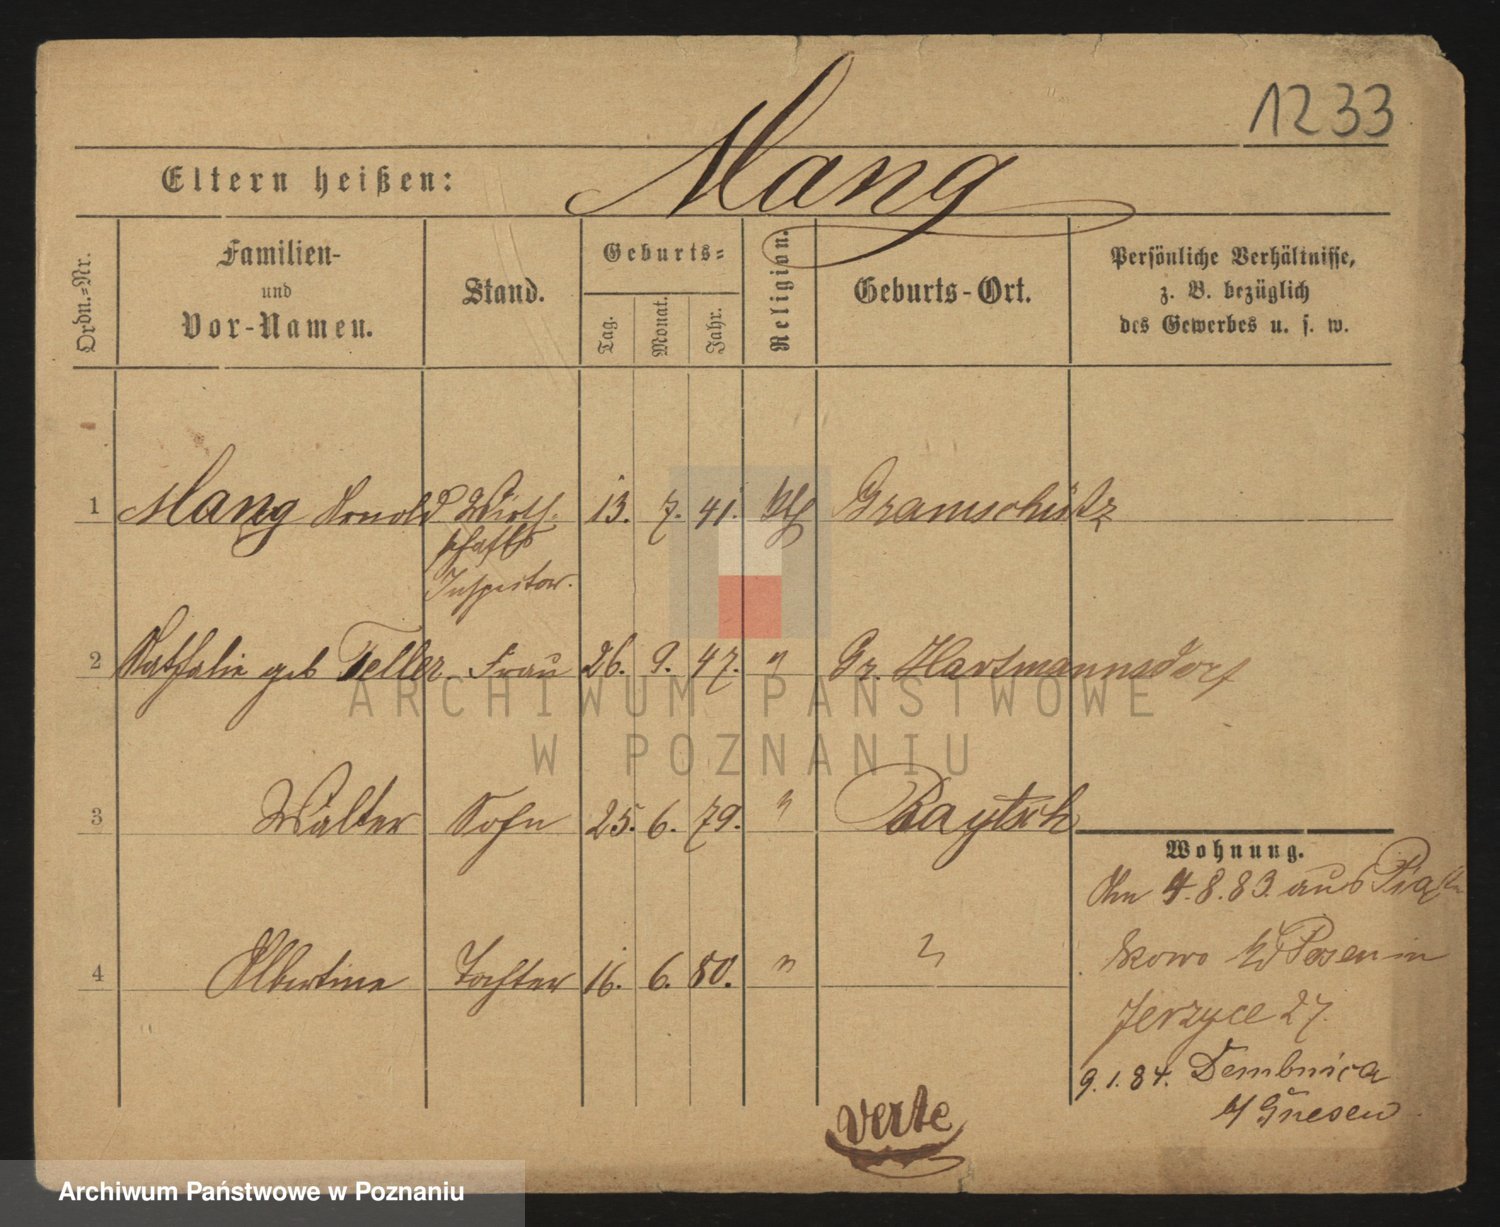 1233
Eltern heißen: Mang
Ordn.-Nr.
Familien-
und
Vor-Namen.
Stand.
Geburts-
Tag.
Monat.
Jahr.
Religion.
Geburts-Ort.
Persönliche Verhältnisse,
z. B. bezüglich
des Gewerbes u. s. w.
1 Mang Arnold Wirth- 13. 7. 41. Gramschütz
schafts
Inspector.
2 Nathalie geb Teller Frau 26. 9. 47. " Gr. Hartmannsdorf
ARCHIWUM PAŃSTWOWE
W POZNANIU
3 Walter Sohn 25. 6. 79. " Baytsch
4 Albertine Tochter 16. 6. 80. " "
Wohnung.
4.8.83. aus Pia
skowo Posen in
Jerzyce 27.
9.1.84. Dembnica
Gnesen
verte
Archiwum Państwowe w Poznaniu